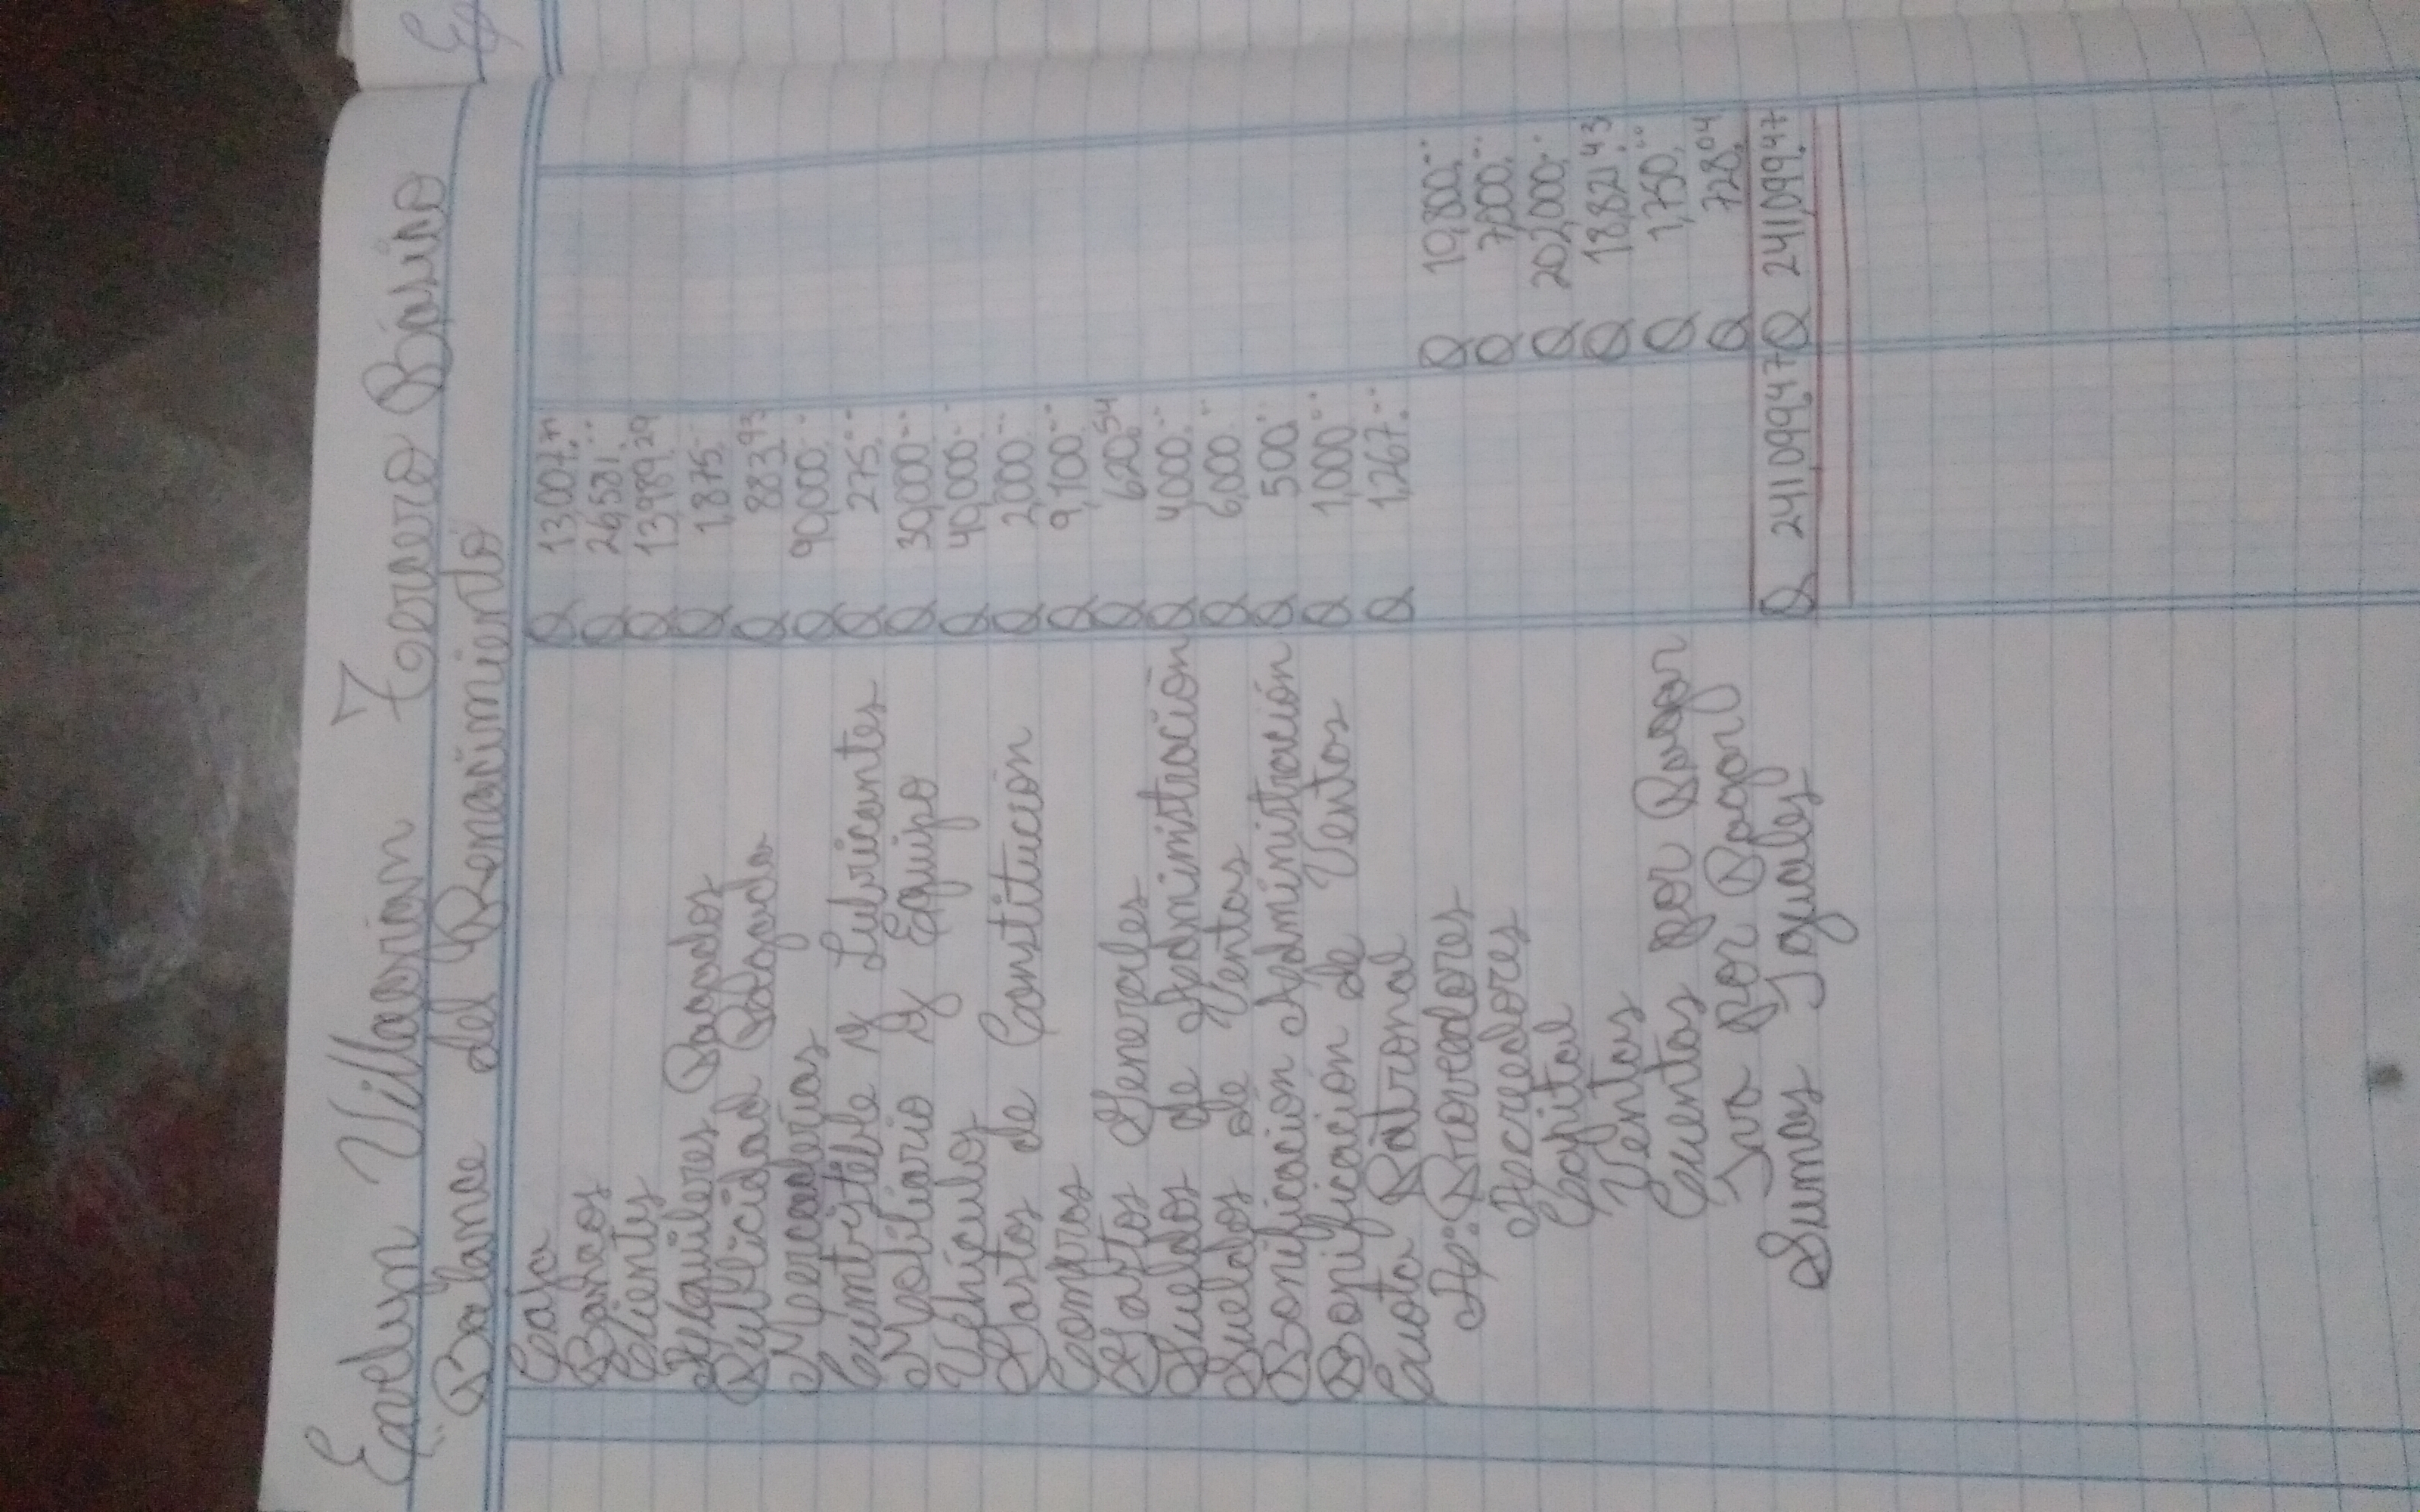 Evelyn Villagrian Tercero Básico
Balance del Renacimiento
Caja Q 13,007.71
Bancos Q 26,581.--
Clientes Q 13,989.29
Alquileres Pagados Q 1,875.--
Publicidad Pagada Q 883.93
Mercaderías Q 90,000.--
Cumbistible y Lubricantes Q 275.--
Mobiliario y Equipo Q 30,000.--
Vehículos Q 40,000.--
Gastos de Constitución Q 2,000.--
Compras Q 9,100.--
Gastos Generales Q 620.54
Sueldos de Administración Q 4,000.--
Sueldos de Ventas Q 6,000.--
Bonificacion Administración Q 500.--
Bonificación de Ventas Q 1,000.--
Cuota Patronal Q 1,267.--
A: Proveedores Q 10,800.--
Acreedores Q 7,000.--
Capital Q 202,000.--
Ventas Q 18,821.43
Cuentas por Pagar Q 1,750.--
Iva Por Pagar Q 728.04
Sumas Iguales Q 241,099.47 Q 241,099.47